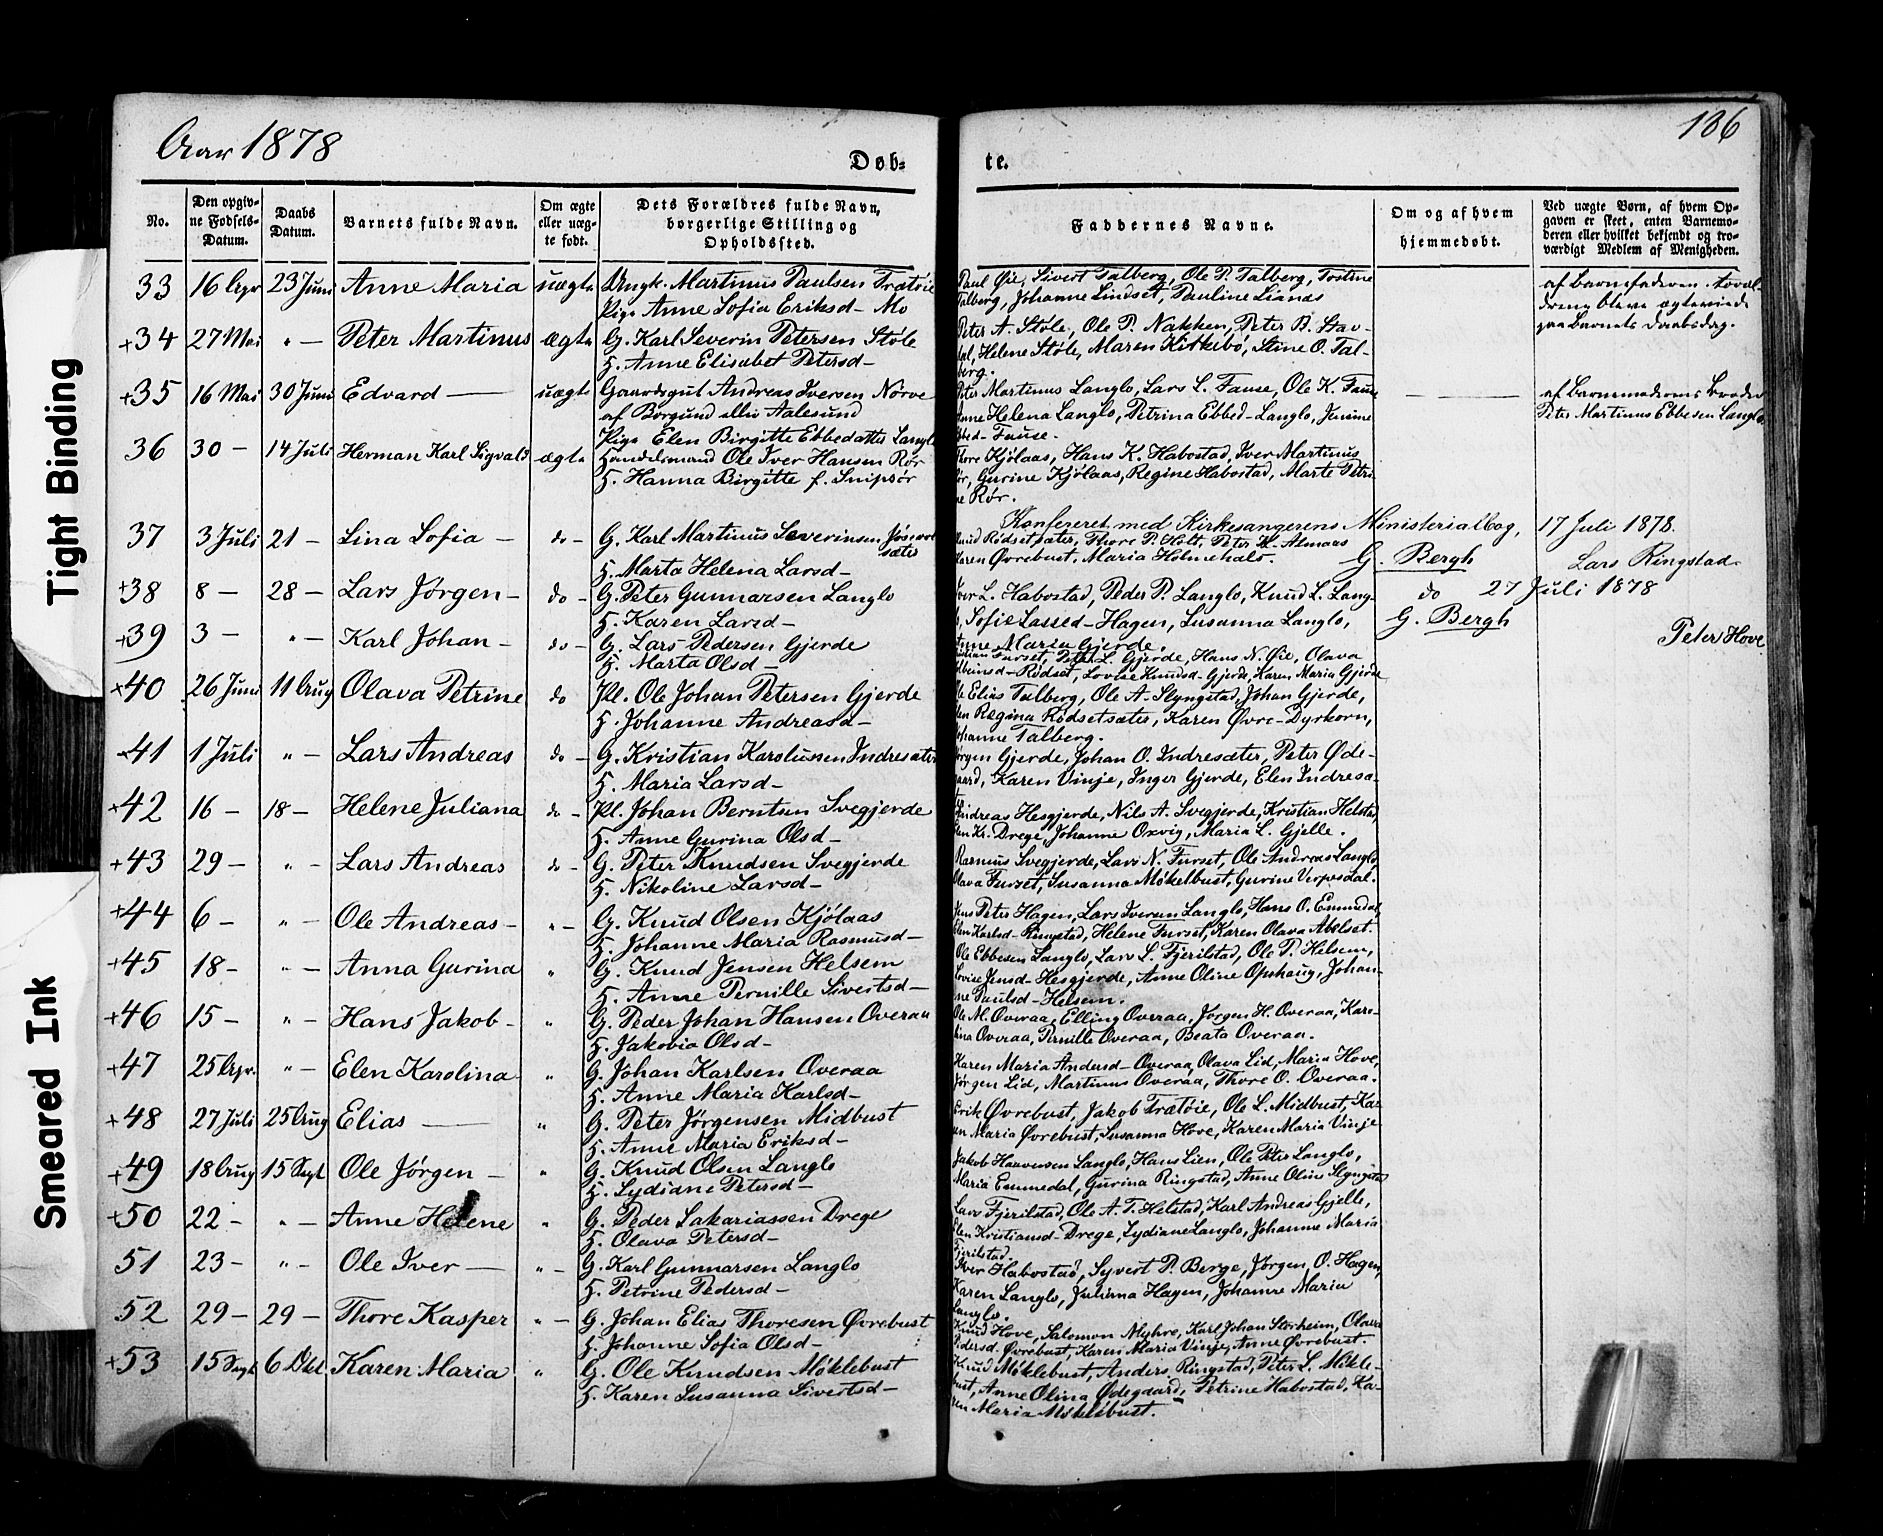 Aar 1878
Døb-
te.
186
Tight Binding
Smeared Ink
No.
Den opgiv-
ne Fødsels-
Datum.
Daabs
Datum.
Barnets fulde Navn.
Om ægte
eller uæg-
te født.
Dets Forældres fulde Navn,
borgerlige Stilling og
Opholdssted.
Faddernes Navne.
Om og af hvem
hjemmedøbt.
Ved uægte Børn, af hvem Op-
gaven er skeet, enten Barnemo-
deren eller hvilket bekjendt og tro-
værdigt Medlem af Menigheden.
33 16 Apr 23 Juni Anne Maria uægte Ungk. Martinus Paulsen Trætøie
Pige Anne Sofia Eriksd- Mo
Paul Øie, Sivert Talberg, Ole P. Talberg, Tostine
Talberg, Johanne Lindset, Pauline Lianæs
af Barnefaderen. Foræl-
drene bleve ægteviede
paa Barnets Daabsdag.
+34 27 Mai " — Peter Martinus ægte G. Karl Severin Petersen Støle
H. Anne Elisabet Petersd-
Peter A. Støle, Ole P. Nakken, Peter B. Stav-
dal, Helene Støle, Maren Kirkebø, Stine O. Tal-
berg.
+35 16 Mai 30 Juni Edvard — uægte Gaardsgut Andreas Iversen Nørve
af Borgund eller Aalesund
Pige Elen Birgitte Ebbedatter Langlo
Peter Martinus Langlo, Lars L. Fause, Ole K. Fause
Anne Helena Langlo, Petrina Ebbed-Langlo, Jenine
Ebbed-Fause.
af Barnemoderens Broder
Peter Martinus Ebbesen Langlo.
36 30 — 14 Juli Herman Karl Sigvald ægte Handelsmand Ole Iver Hansen Rør
H. Hanna Birgitte f. Snipsør
Thore Kjølaas, Hans K. Habostad, Iver Martinus
Rør, Gurine Kjølaas, Regine Habostad, Marte Petri-
ne Rør.
Konfereret med Kirkesangerens Ministerialbog, 17 Juli 1878.
G. Bergh Lars Ringstad
37 3 Juli 21 — Lina Sofia — do — G. Karl Martinus Severinsen
sæter
H. Marta Helena Larsd-
Knud Rødsetsæter, Thore P. Holt, Peter K. Almaas
Karen Øvrebust, Maria Holmehals.
+38 8 — 28 — Lars Jørgen — do — G. Peter Gunnarsen Langlo
H. Karen Larsd-
Iver L. Habostad, Peder P. Langlo, Knud L. Lang-
lo, Sofie Lassed-Hagen, Susanna Langlo,
Anne Maria Gjerde.
do 27 Juli 1878
G. Bergh
Peter Hove
+39 3 — " — Karl Johan — do — G. Lars Pedersen Gjerde
H. Marta Olsd-
Furset, Peter L. Gjerde, Hans N. Øie, Olava
Rødset, Lovise Knudsd-Gjerde, Karen Maria Gjerde
+40 26 Juni 11 Aug Olava Petrine do Pl. Ole Johan Petersen Gjerde
H. Johanne Andreasd-
Ole Elias Talberg, Ole A. Slyngstad, Johan Gjerde,
Elen Regina Rødsetsæter, Karen Øvre-Dyrkorn,
Johanne Talberg.
+41 1 Juli " — Lars Andreas do — G. Kristian Karolussen Indresæter
H. Maria Larsd-
Jørgen Gjerde, Johan O. Indresæter, Peter Øde-
gaard, Karen Vinje, Inger Gjerde, Elen Indresæ-
ter
+42 16 — 18 — Helene Juliana do — Pl. Johan Berntsen Svegjerde
H. Anne Gurina Olsd-
Andreas Hesgjerde, Nils A. Svegjerde, Kristian Helstad
Elen Kr. Drege, Johanne Oxvig, Maria L. Gjelle.
+43 29 — " — Lars Andreas do — G. Peter Knudsen Svegjerde
H. Nikoline Larsd-
Rasmus Svegjerde, Lars N. Furset, Ole Andreas Langlo
Olava Furset, Susanna Møkelbust, Gurine Verpesdal.
+44 6 — " — Ole Andreas — " — G. Knud Olsen Kjølaas
H. Johanne Maria Rasmusd-
Jens Peter Hagen, Lars Iversen Langlo, Hans O. Emmedal,
Elen Karlsd-Ringstad, Helene Furset, Karen Olava Abelset.
+45 18 — " — Anna Gurina " G. Knud Jensen Helsem
H. Anne Pernille Sivertsd-
Ole Ebbesen Langlo, Lars L. Fjerilstad, Ole P. Helsem,
Lovise Jensd-Hesgjerde, Anne Oline Opshaug, Johan-
ne Paulsd-Helsem.
+46 15 — " — Hans Jakob — " G. Peder Johan Hansen Overaa
H. Jakobia Olsd-
Ole M. Overaa, Elling Overaa, Jørgen H. Overaa, Karo-
lina Overaa, Pernille Overaa, Beata Overaa.
+47 25 Apr. " — Elen Karolina " G. Johan Karlsen Overaa
H. Anne Maria Karlsd-
Karen Maria Andersd-Overaa, Olava Lid, Maria Hove,
Jørgen Lid, Martinus Overaa, Thore O. Overaa.
+48 27 Juli 25 Aug Elias — " G. Peter Jørgensen Midbust
H. Anne Maria Eriksd-
Erik Øvrebust, Jakob Trætøie, Ole L. Midbust, Ka-
ren Maria Øvrebust, Susanna Hove, Karen Maria Vinje
+49 18 Aug 15 Sept Ole Jørgen — " G. Knud Olsen Langlo
H. Lydiane Petersd-
Jakob Haavensen Langlo, Hans Lien, Ole Peter Langlo,
Maria Emmedal, Gurina Ringstad, Anne Oline Slyngstad
+50 22 — " — Anne Helene " G. Peder Sakariassen Drege
H. Olava Petersd-
Lars Fjerilstad, Ole A. T. Helstad, Karl Andreas Gjelle,
Elen Kristiansd-Drege, Lydiane Langlo, Johanne Maria
Fjerilstad.
51 23 — " — Ole Iver — " — G. Karl Gunnarsen Langlo
H. Petrine Pedersd-
Iver Habostad, Syvert P. Berge, Jørgen O. Hagen,
Karen Langlo, Juliana Hagen, Johanne Maria
Langlo.
52 29 — 29 — Thore Kasper " — G. Johan Elias Thoresen Øvrebust
H. Johanne Sofia Olsd-
Knud Hove, Salomon Myhre, Karl Johan Storheim, Olava
Pedersd. Øvrebust, Karen Maria Vinje, Anne Øvrebust.
+53 15 Sept 6 Okt. Karen Maria " G. Ole Knudsen Møklebust
H. Karen Susanna Sivertsd-
Knud Møklebust, Anders Ringstad, Peter L. Møkle-
bust, Anne Olina Ødegaard, Petrine Habostad, Ka-
ren Maria Møklebust.